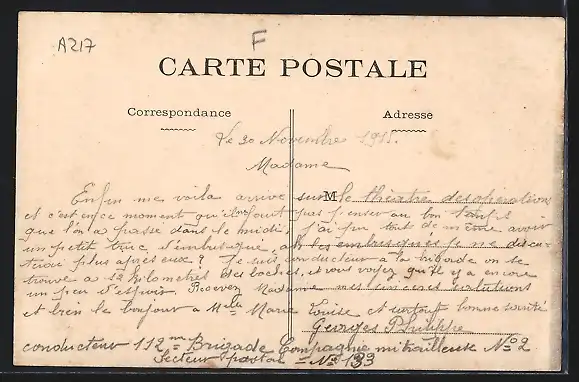 A217
F
CARTE POSTALE
Correspondance
Adresse
Le 30 Novembre 1915.
Madame
M
Enfin me voila arrivé sur le théatre des opérations
et c'est en ce moment qu'il faut pas penser au bon temps
que l'on a passé dans le midi, j'ai pu tout de même avoir
un petit truc d'embusqué, les embusqués je ne
plus après eux? Je suis conducteur à la on se
trouve à 12 kilometres des boches, et vous voyez qu'il y a encore
un peu d'espoir. Recevez Madame mes sincères salutations
et bien le bonjour à Melle Marie Louise et surtout bonne santé
Georges Philippe
conducteur 112me Brigade Compagnie mitrailleuse No 2
Secteur postal No 133